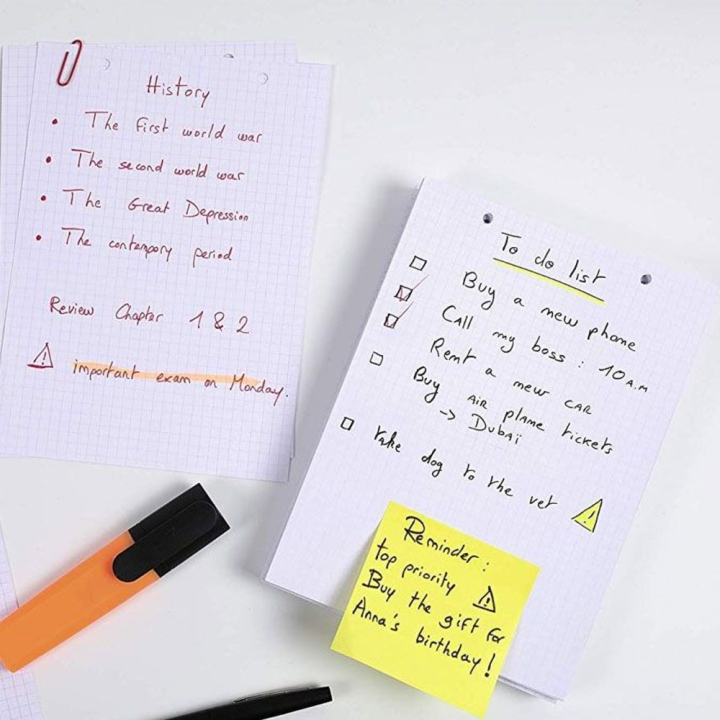 History
• The first world war
• The second world war
• The Great Depression
• The contempory period
Review Chapter 1 & 2
⚠ important exam on Monday.
To do list
☐ Buy a new phone
☑ Call my boss : 10 A.M
☑ Rent a new car
☐ Buy air plane tickets
-> Dubaï
☐ take dog to the vet ⚠
Reminder :
top priority ⚠
Buy the gift for
Anna's birthday !